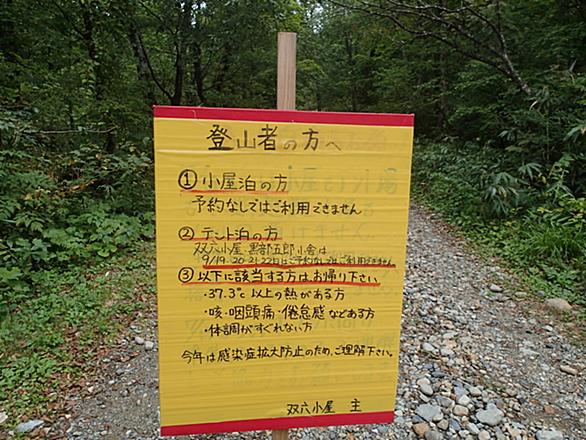 登山者の方へ
① 小屋泊の方
予約なしではご利用できません
② テント泊の方
双六小屋・黒部五郎小舎は
9/19・20・21・22日はご予約なしではご利用できません
③ 以下に該当する方は、お帰り下さい
・37.3℃以上の熱がある方
・咳・咽頭痛・倦怠感などある方
・体調がすぐれない方
今年は感染症拡大防止のため、ご理解下さい。
双六小屋 主